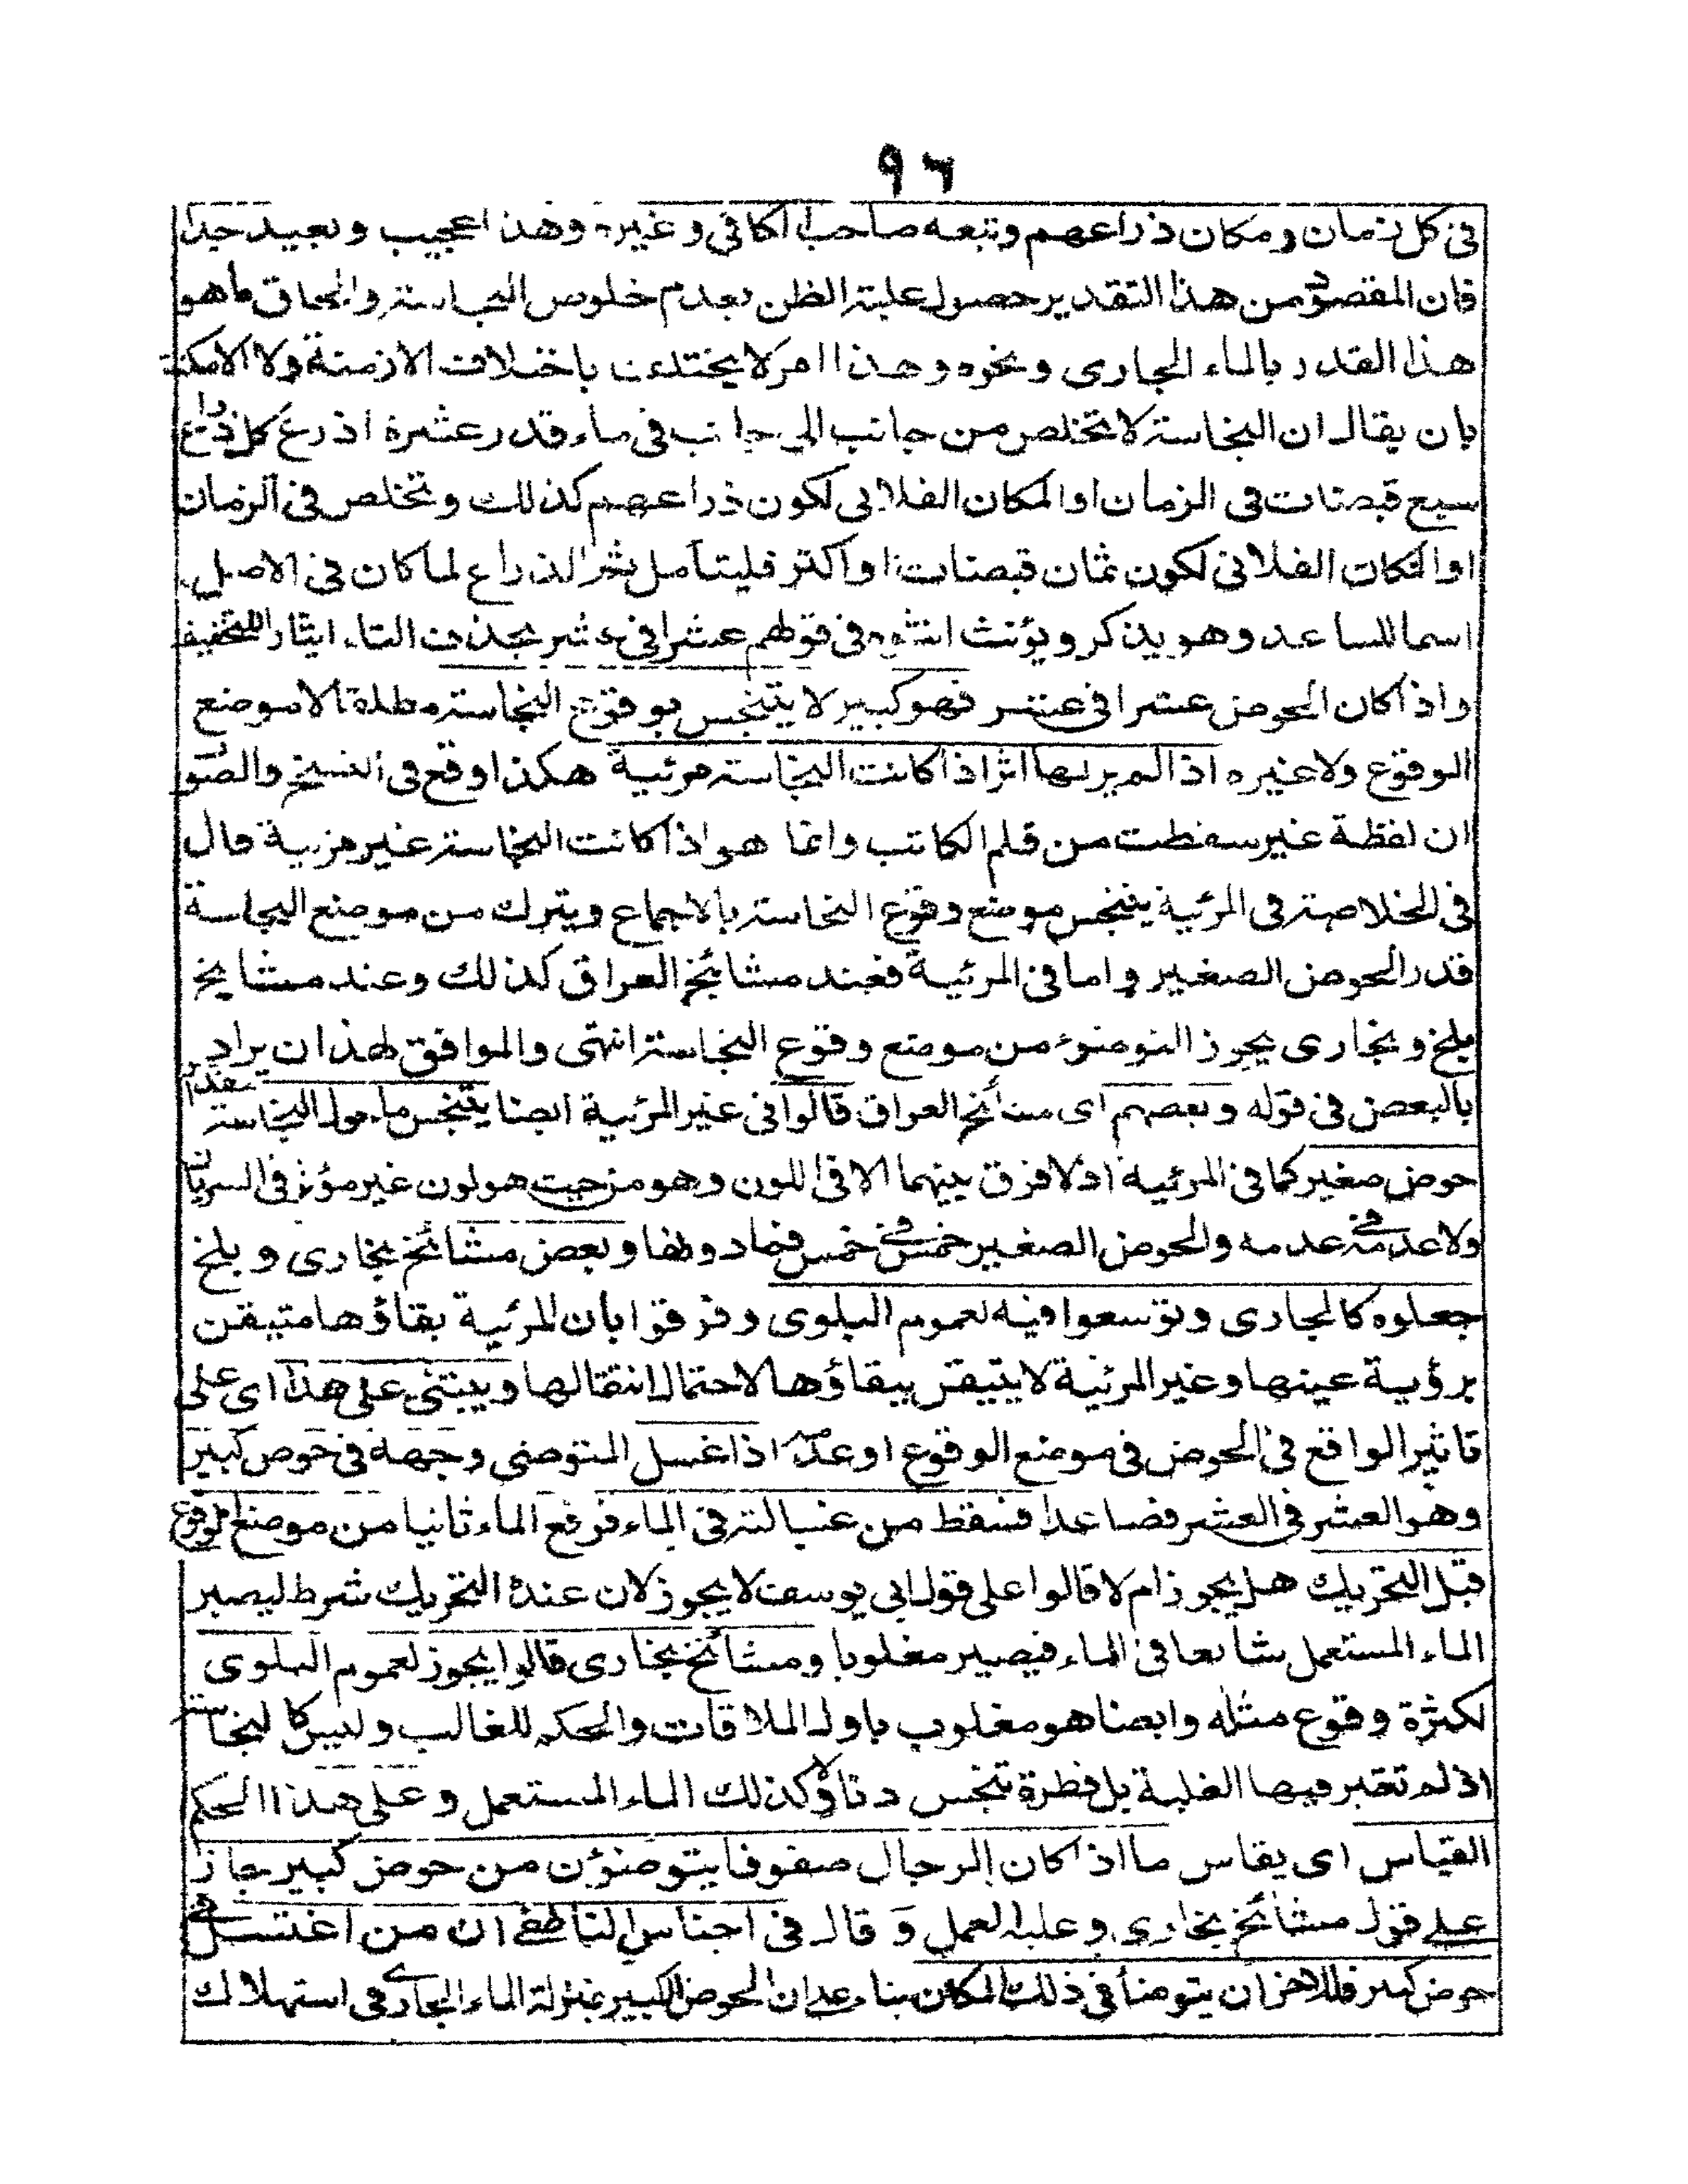 ٩٦
فى كل زمان ومكان ذراعهم وتبعه صاحب الكافى وغيره وهذا عجيب وبعيد جدا
فان المقصود من هذا التقدير حصول غلبة الظن بعدم خلوص النجاسة والحاق ما هو
هذا القدر بالماء الجارى ونحوه وهذا امر لا يختلف باختلاف الازمنة ولا الامكنة
بان يقال ان النجاسة لا تخلص من جانب الى جانب فى ماء قدر عشرة اذرع كل ذراع
سبع قبضات فى الزمان او المكان الفلانى لكون ذراعهم كذلك وتخلص فى الزمان
او المكان الفلانى لكون ثمان قبضات او اكثر فليتأمل ثم الذراع لما كان فى الاصل
اسما للساعد وهو يذكر ويؤنث انثوه فى قولهم عشرا فى عشر بحذف التاء ايثارا للتخفيف
واذا كان الحوض عشرا فى عشر فهو كبير لا يتنجس بوقوع النجاسة مطلقا لا موضع
الوقوع ولا غيره اذا لم ير لها اثر اذا كانت النجاسة مرئية هكذا وقع فى النسخ والصواب
ان لفظة غير سقطت من قلم الكاتب وانما هو اذا كانت النجاسة غير مرئية قال
فى الخلاصة فى المرئية يتنجس موضع وقوع النجاسة بالاجماع ويترك من موضع النجاسة
قدر الحوض الصغير واما فى المرئية فعند مشائخ العراق كذلك وعند مشايخ
بلخ وبخارى يجوز التوضوء من موضع وقوع النجاسة انتهى والموافق لهذا ان يراد
بالبعض فى قوله وبعضهم اى مشائخ العراق قالوا فى غير المرئية ايضا يتنجس ما حول النجاسة بقدر
حوض صغير كما فى المرئية اذ لا فرق بينهما الا فى اللون وهو من حيث هو لون غير مؤثر فى السريان
ولا عدمه فى عدمه والحوض الصغير خمس فى خمس فما دونها وبعض مشائخ بخارى وبلخ
جعلوه كالجارى وتوسعوا فيه لعموم البلوى وفرقوا بان المرئية بقاؤها متيقن
برؤية عينها وغير المرئية لا يتيقن ببقاؤها لاحتمال انتقالها ويبتنى على هذا اى على
تاثير الواقع فى الحوض فى موضع الوقوع او عدمه اذا غسل المتوضى وجهه فى حوض كبير
وهو العشر فى العشر فصاعدا فسقط من غسالته فى الماء فرفع الماء ثانيا من موضع الوقوع
قبل التحريك هل يجوز ام لا قالوا على قول ابى يوسف لا يجوز لان عنده التحريك شرط ليصير
الماء المستعمل شائعا فى الماء فيصير مغلوبا ومشائخ بخارى قالوا يجوز لعموم البلوى
لكثرة وقوع مثله وايضا هو مغلوب باول الملاقات والحكم للغالب وليس كالنجاسة
اذ لم تعتبر فيها الغلبة بل قطرة تنجس دنا ولا كذلك الماء المستعمل وعلى هذا الحكم
القياس اى يقاس ما اذا كان الرجال صفوفا يتوضئون من حوض كبير جاز
على قول مشائخ بخارى وعليه العمل و قال فى اجناس الناطفى ان من اغتسل فى
حوض كبير فللآخر ان يتوضأ فى ذلك المكان بناء على ان الحوض الكبير بمنزلة الماء الجارى فى استهلاك